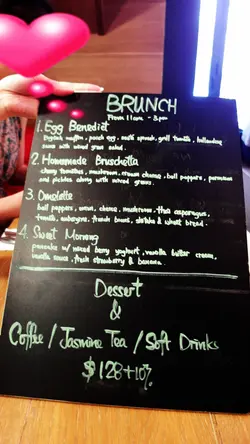 BRUNCH
From 11am - 3pm
1. Egg Benedict
English muffin, poach egg, sauté spinach, grill tomato, hollandaise
sauce with mixed green salad.
2. Homemade Bruschetta
cherry tomatoes, mushroom, cream cheese, bell peppers, parmesan
and pickles along with mixed greens.
3. Omelette
bell peppers, onion, cheese, mushrooms, thai asparagus,
tomato, aubergine, french beans, & wheat bread.
4. Sweet Morning
pancake w/ mixed berry yoghurt, vanilla butter cream,
vanilla sauce, fresh strawberry & banana.
Dessert
&
Coffee / Jasmine Tea / Soft Drinks
$128+10%